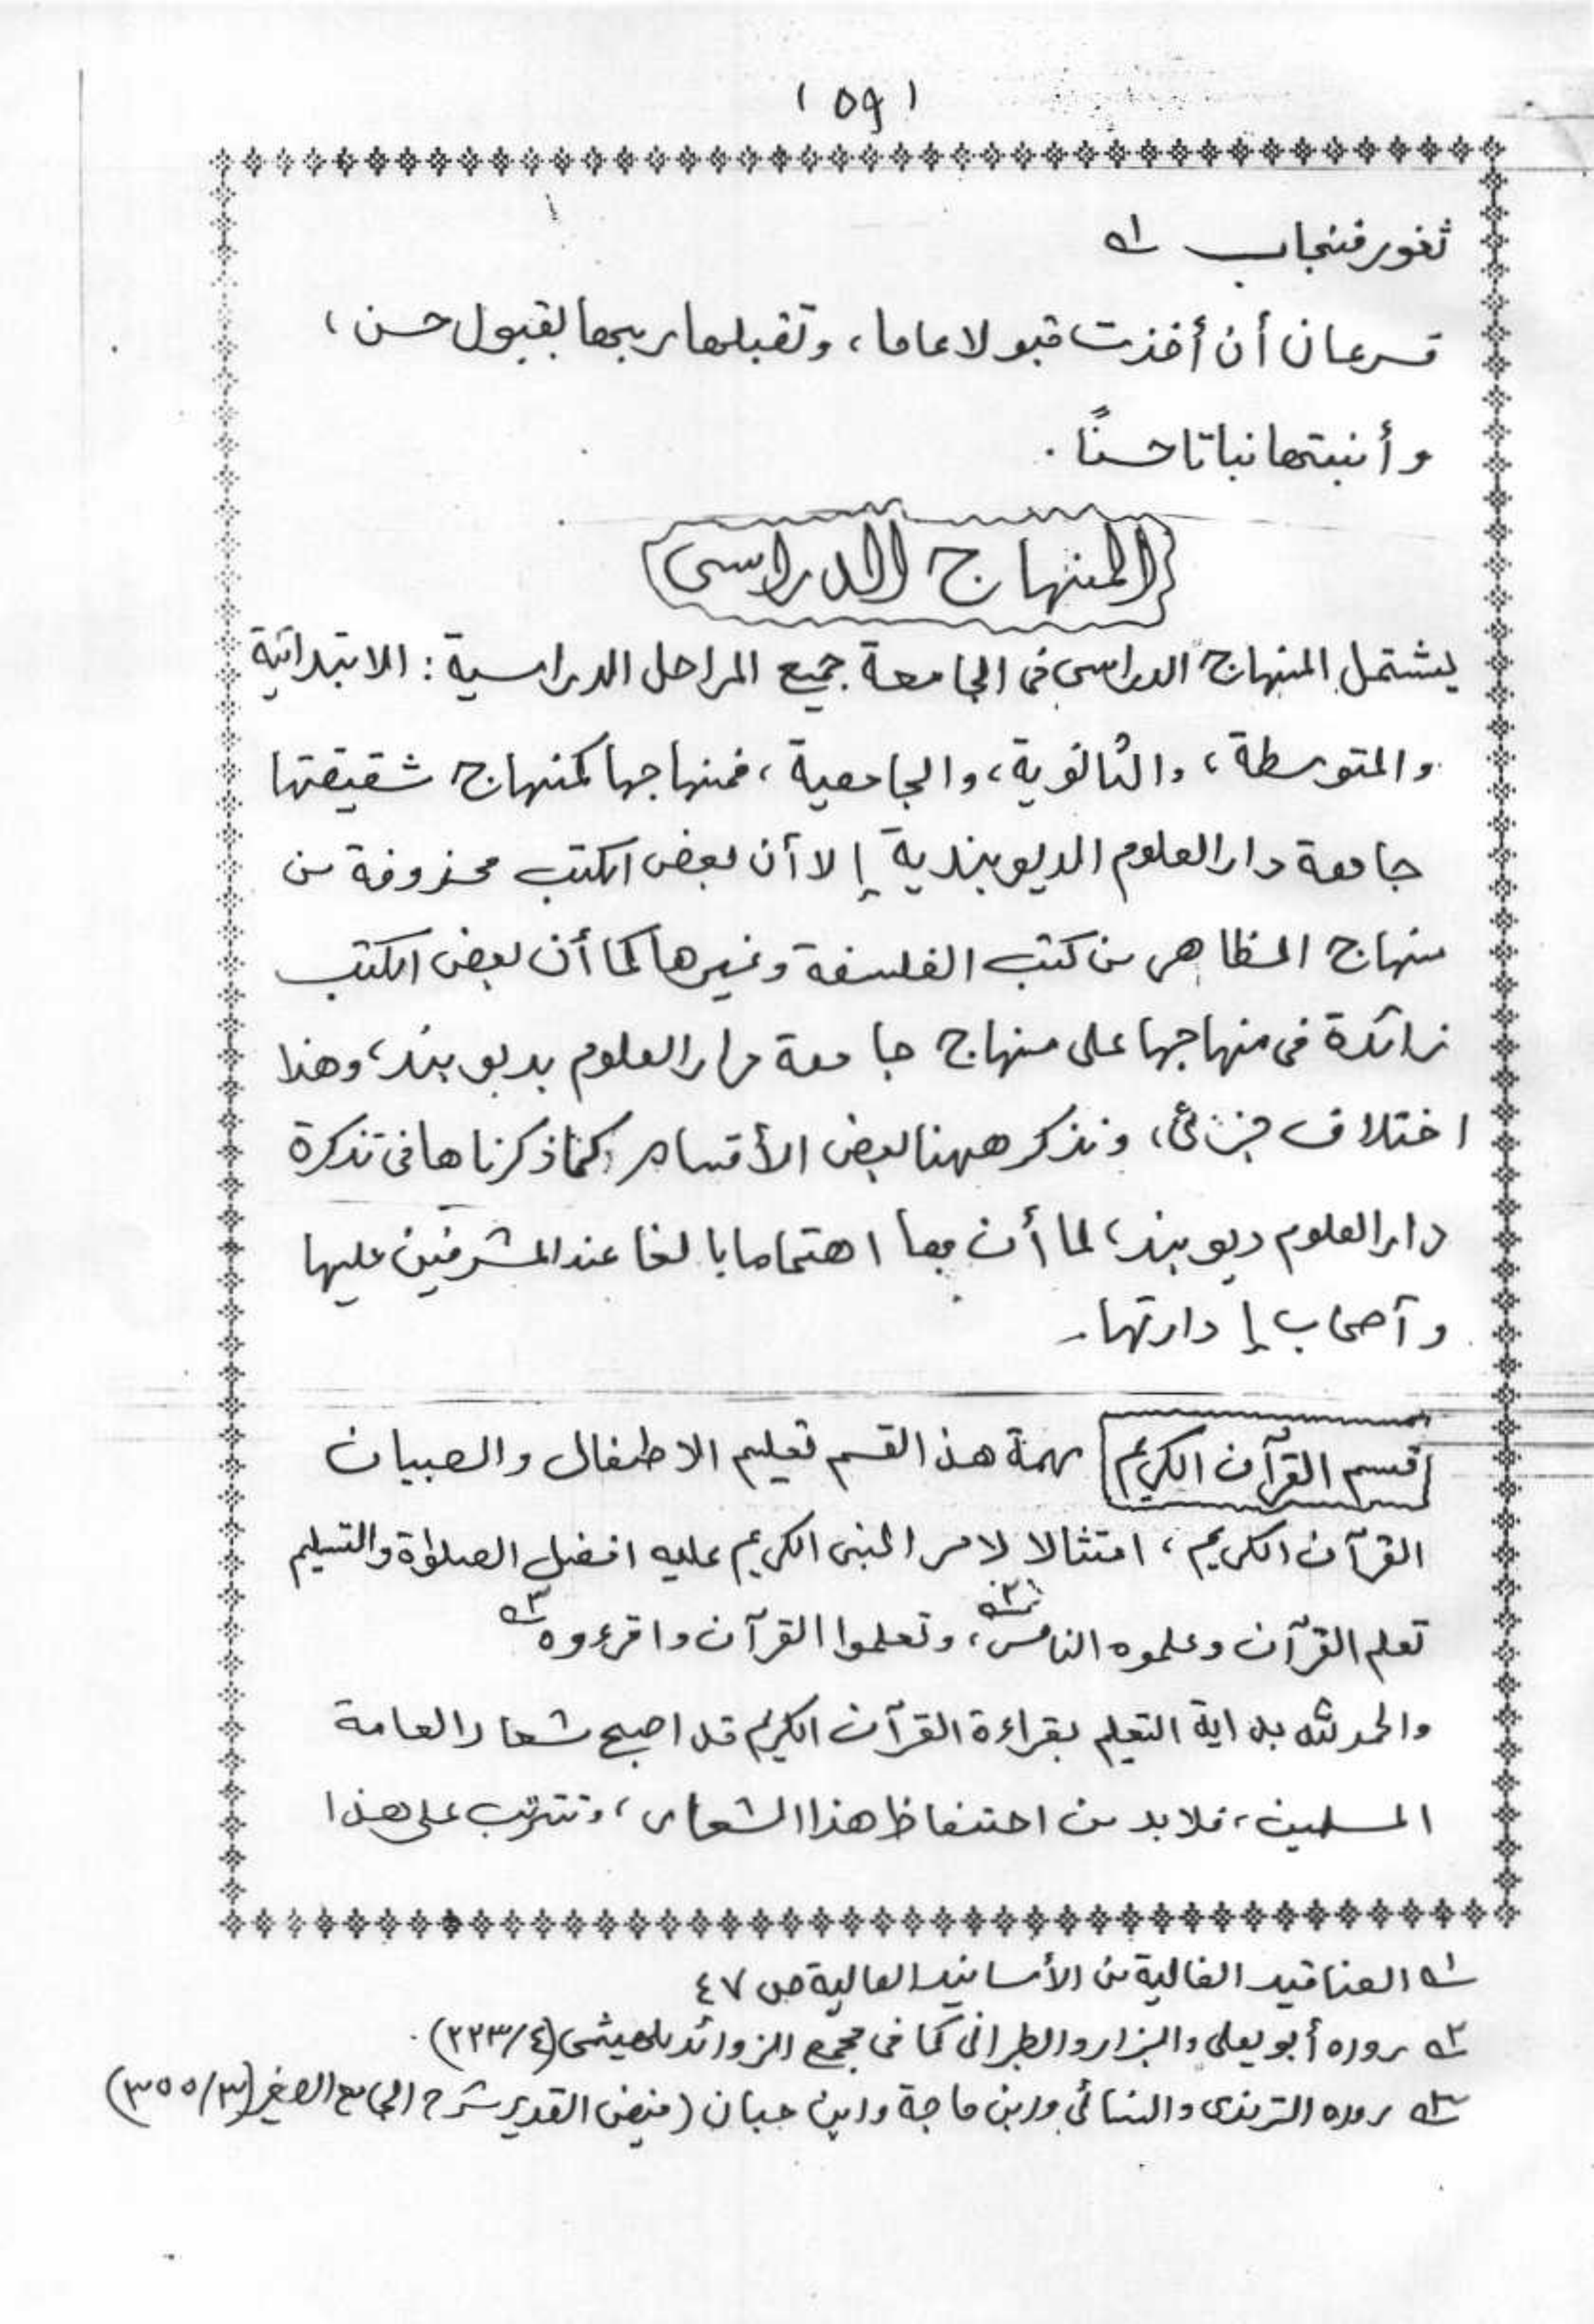 ( ٥٩ )
ثغور فنجاب ١ـه
فسرعان أن أخذت قبولا عاما، وتقبلها ربها بقبول حسن،
وأنبتها نباتا حسنًا.
المنهاج الدراسى
يشتمل المنهاج الدراسى فى الجامعة جميع المراحل الدراسية: الابتدائية
والمتوسطة، والثانوية، والجامعية، فمنهاجها كمنهاج شقيقتها
جامعة دار العلوم الديوبندية إلا أن بعض الكتب محذوفة من
منهاج المظاهر من كتب الفلسفة وغيرها كما أن بعض الكتب
زائدة فى منهاجها على منهاج جامعة دار العلوم بديوبند، وهذا
اختلاف جزئى، ونذكر ههنا بعض الأقسام كما ذكرناها فى تذكرة
دار العلوم ديوبند، لما أن بها اهتماما بالغا عند المشرفين عليها
وآصحاب إدارتها۔
قسم القرآن الكريم مهمة هذ القسم تعليم الاطفال والصبيان
القرآن الكريم، امتثالا لامر النبى الكريم عليه افضل الصلوٰة والتسليم
تعلم القرآن وعلموه الناس٢ـه، وتعلموا القرآن واقرءوه٣ـه
والحمد لله بداية التعليم بقراءة القرآن الكريم قد اصبح شعار العامة
المسلمين، فلا بد من احتفاظ هذا الشعار، وتترتب على هذا
١ـه العناقيد الغالية من الأسانيد العالية ص ٤٧
٢ـه رواه أبو يعلى والبزار والطبرانى كما فى مجمع الزوائد للهيثمى (٢٢٣/٤).
٣ـه رواه الترمذى والنسائى وابن ماجة وابن حبان (فيض القدير شرح الجامع الصغير (٣٥٥/٣)